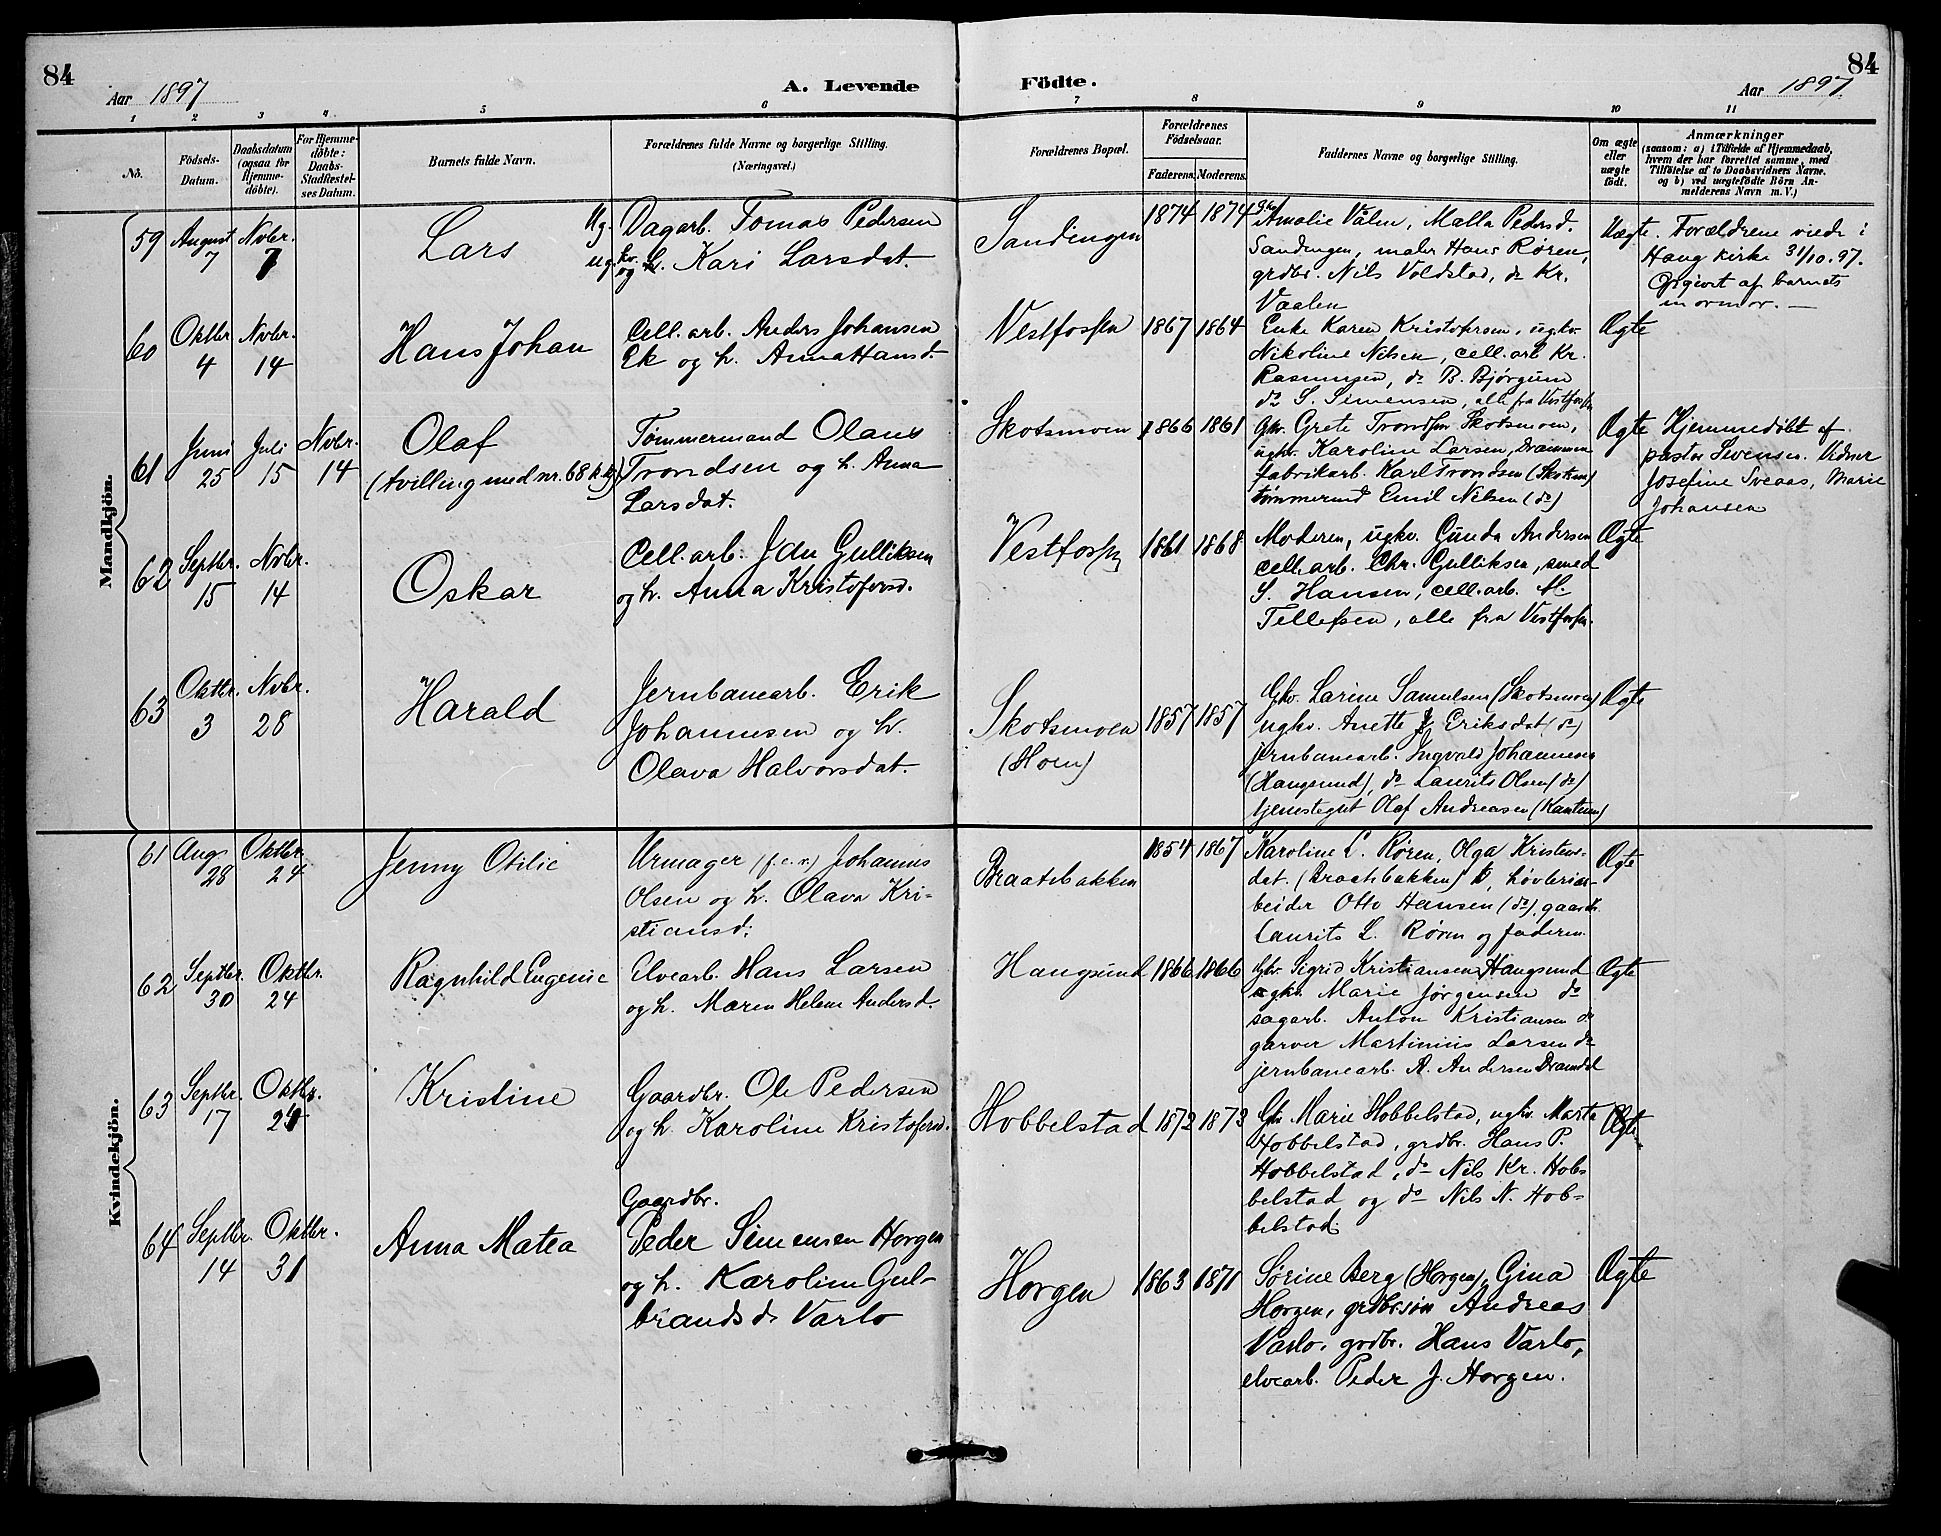 84
Aar 1897
A. Levende
Födte.
Aar 1897
84
1 2 3 4 5 6 7 8 9 10 11
No.
Födsels-
Datum.
Daabsdatum
(ogsaa for
Hjemme-
döbte).
For Hjemme-
döbte:
Daabs-
Stadfæstel-
ses Datum.
Barnets fulde Navn.
Forældrenes fulde Navne og borgerlige Stilling.
(Næringsvei.)
Forældrenes Bopæl.
Forældrenes
Födselsaar.
Faderens. Moderens.
Faddernes Navne og borgerlige Stilling.
Om ægte
eller
uægte
födt.
Anmærkninger
(saasom: a) i Tilfælde af Hjemmedaab,
hvem der har forrettet samme, med
Tilföielse af to Daabsvidners Navne.
og b) ved uægtefödte Börn An-
melderens Navn m. V.)
Mandkjön.
59
August
7
Novbr.
7
Lars
Ug. Dagarb. Tomas Pedersen
og Kari Larsdat.
Sandingen
1874 1874
Amalie Vålen, Malla Pedersd.
Sandingen, maler Hans Røren,
grdbr. Nils Voldstad, do Kr.
Vaalen
Uægte.
Forældrene viede i
Haug kirke 31/10.97.
Opgivet af barnets
mormor. —
60
Oktbr.
4
Novbr.
14
Hans Johan
Cell. arb. Anders Johansen
Ek og h. Anna Hansd.
Vestfossen
1867 1864
Enke Karen Kristofersen, ugkv.
Nikoline Nilsen, cell. arb. Kr.
Rasmussen, do B. Bjørgum
do S. Simensen, alle fra Vestfossen
Ægte
61
Juni
25
Juli
15
Novbr.
14
Olaf
(tvilling med nr. 68 k.kj)
Tømmermand Olaus
Trondsen og h. Anna
Larsdat.
Skotsmoen
1866 1861
Gkv. Grete Trondsen Skotsmoen,
ugkv. Karoline Larsen, Drammen
fabrikarb. Karl Trondsen (Skotsm)
tømmermd Emil Nilsen (do)
Ægte
Hjemmedøbt af
pastor Svensen. Vidner
Josefine Sveaas, Marie
Johansen
62
Septbr.
15
Novbr.
14
Oskar
Cell. arb. Gulliksen
og h. Anna Kristofersd.
Vestfossen
1861 1868
Moderen, ugkv. Gunda Andersen
cell. arb. Chr. Gulliksen, smed
S. Hansen, cell. arb. M.
Tellefsen, alle fra Vestfossen.
Ægte
63
Oktbr.
3
Novbr.
28
Harald
Jernbanearb. Erik
Johannesen og h.
Olava Halvorsdat.
Skotsmoen
(Hoen)
1857 1857
Gkv. Larine Samuelsen (Skotsmoen)
ugkv. Anette Eriksdat (do)
jernbanearb. Ingvald Johannesen
(Haugsund), do Laurits Olsen (do)
tjenestegut Olaf Andreasen
Ægte
Kvindekjön.
61
Aug.
28
Oktbr.
24
Jenny Otilie
Urmager Johannes
Olsen og h. Olava Kri-
stiansd.
Braatabakken
1854 1867
Karoline L. Røren, Olga Kristens-
dat. (Braatabakken), høvleriar-
beider Otto Hansen (do), gaardbr.
Laurits L. Røren og faderen.
Ægte
62
Septbr.
30
Oktbr.
24
Ragnhild Eugenie
Elvearb. Hans Larsen
og h. Maren Helene Andersd.
Haugsund
1866 1866
Gkv. Sigrid Kristiansen Haugsund
ugkv. Marie Jørgensen do
sagarb. Anton Kristiansen do
garver Martinius Larsen do
jernbanearb. A. Andersen
Ægte
63
Septbr.
17
Oktbr.
24
Kristine
Gaardbr. Ole Pedersen
og h. Karoline Kristofersd.
Hobbelstad
1872 1873
Gkv. Marie Hobbelstad, ugkv. Marta
Hobbelstad, grdbr. Hans P.
Hobbelstad, do Nils Kr. Hob-
belstad og do Nils N. Hob-
belstad.
Ægte
64
Septbr.
14
Oktbr.
31
Anna Matea
Gaardbr.
Peder Simensen Horgen
og h. Karoline Gul-
brandsd. Varlo
Horgen
1863 1871
Sørine Berg (Horgen), Gina
Horgen, grdbr.søn Andreas
Varlo, grdbr. Hans Varlo,
elvearb. Peder J. Horgen.
Ægte